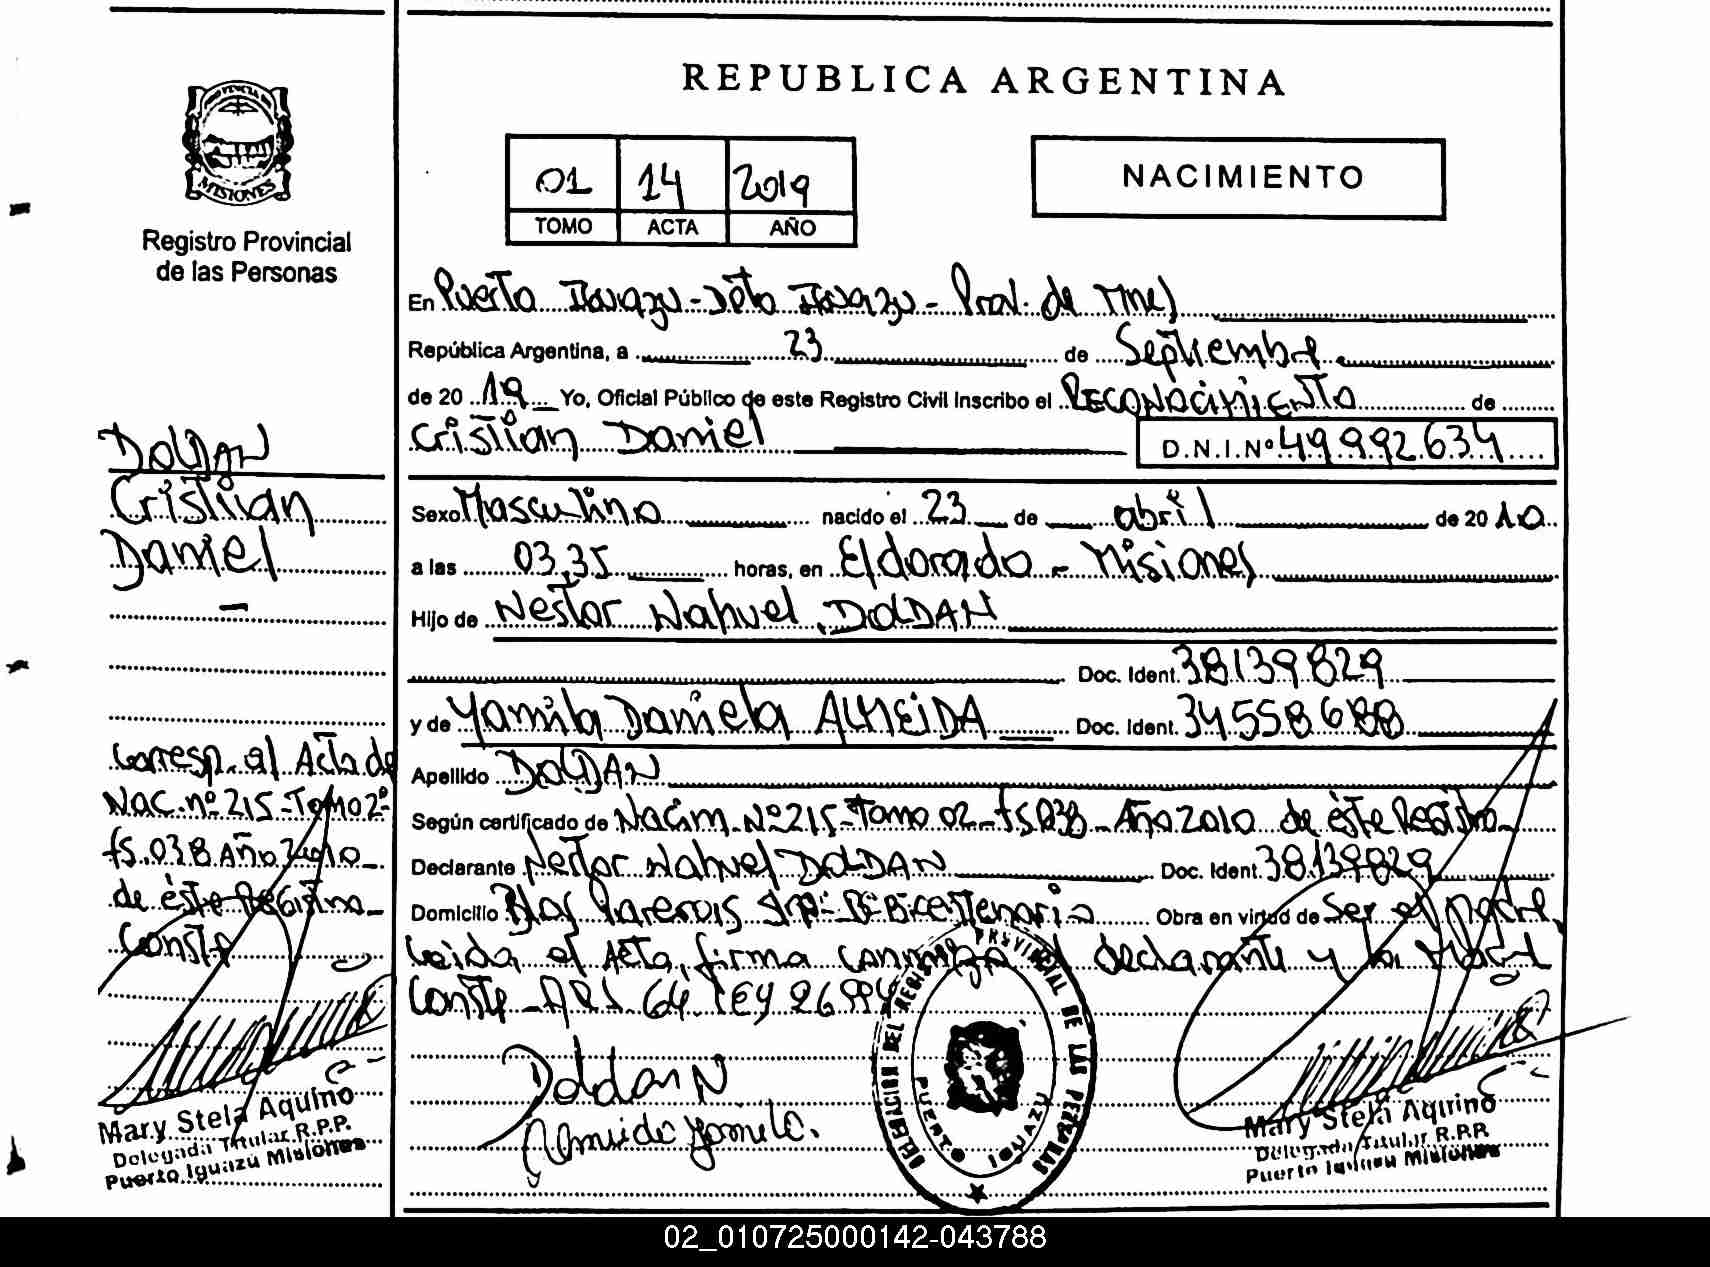 REPUBLICA ARGENTINA
PROVINCIA DE
MISIONES
Registro Provincial
de las Personas
01 14 2019
TOMO ACTA AÑO
NACIMIENTO
En Puerto Iguazu - Dpto Iguazu - Prov. de Mnes
República Argentina, a 23 de Septiembre
de 20 19 Yo, Oficial Público de este Registro Civil Inscribo el RECONOCIMIENTO de
Cristian Daniel D.N.I.Nº 49.992.634
Sexo Masculino nacido el 23 de abril de 20 10
a las 03,35 horas, en Eldorado - Misiones
Hijo de Nestor Nahuel DOLDAN
Doc. Ident. 38139829
y de Yamila Daniela ALMEIDA Doc. Ident. 34558688
Apellido DOLDAN
Según certificado de Nacim. Nº 215 - Tomo 02 - fs 038 - Año 2010 de éste Registro
Declarante Nestor Nahuel DOLDAN Doc. Ident. 38.139829
Domicilio Blas Parerois S/Nº Bº Bicentenario Obra en virtud de Ser el Padre
Leida el Acta, firma conmigo el declarante y la Madre
Conste - ART. 64 LEY 26994
Doldan N
Almeida Yamila.
DELEGACION DEL REGISTRO PROVINCIAL DE LAS PERSONAS
PUERTO IGUAZU
Mary Stela Aquino
Delegada Titular R.P.P.
Puerto Iguazu Misiones
DOLDAN
Cristian
Daniel
Corresp. al Acta de
Nac. nº 215 - Tomo 2º
fs. 038 Año 2010
de éste Registro
Conste
Mary Stela Aquino
Delegada Titular R.P.P.
Puerto Iguazu Misiones
02_010725000142-043788